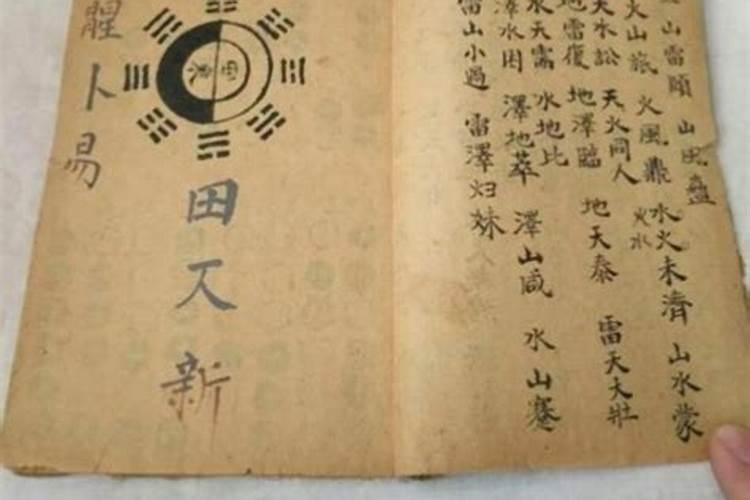 山雷頤 山風蠱
火山旅 火風鼎 水火未濟 山水蒙
火水
天水訟 天火同人
地雷復 地澤臨 地天泰 雷天大壯
水天需 水地比
澤水困 澤地萃 澤山咸 水山蹇
雷山小過 雷澤归妹
田 新
卜易